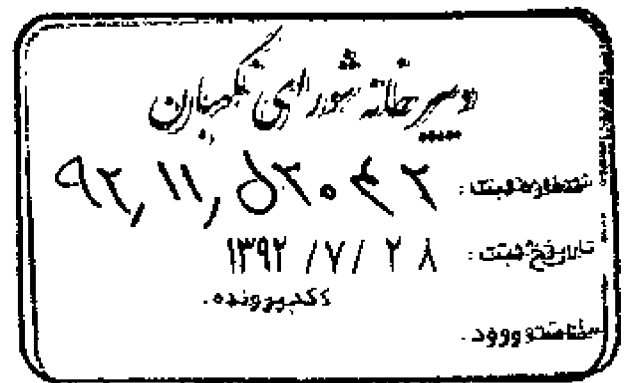 دبیرخانه شورای نگهبان
شماره ثبت: ۹۲,۱۱,۵۲۰۴۲
تاریخ ثبت: ۱۳۹۲/۷/۲۸
کد پرونده.
ساعت ورود.